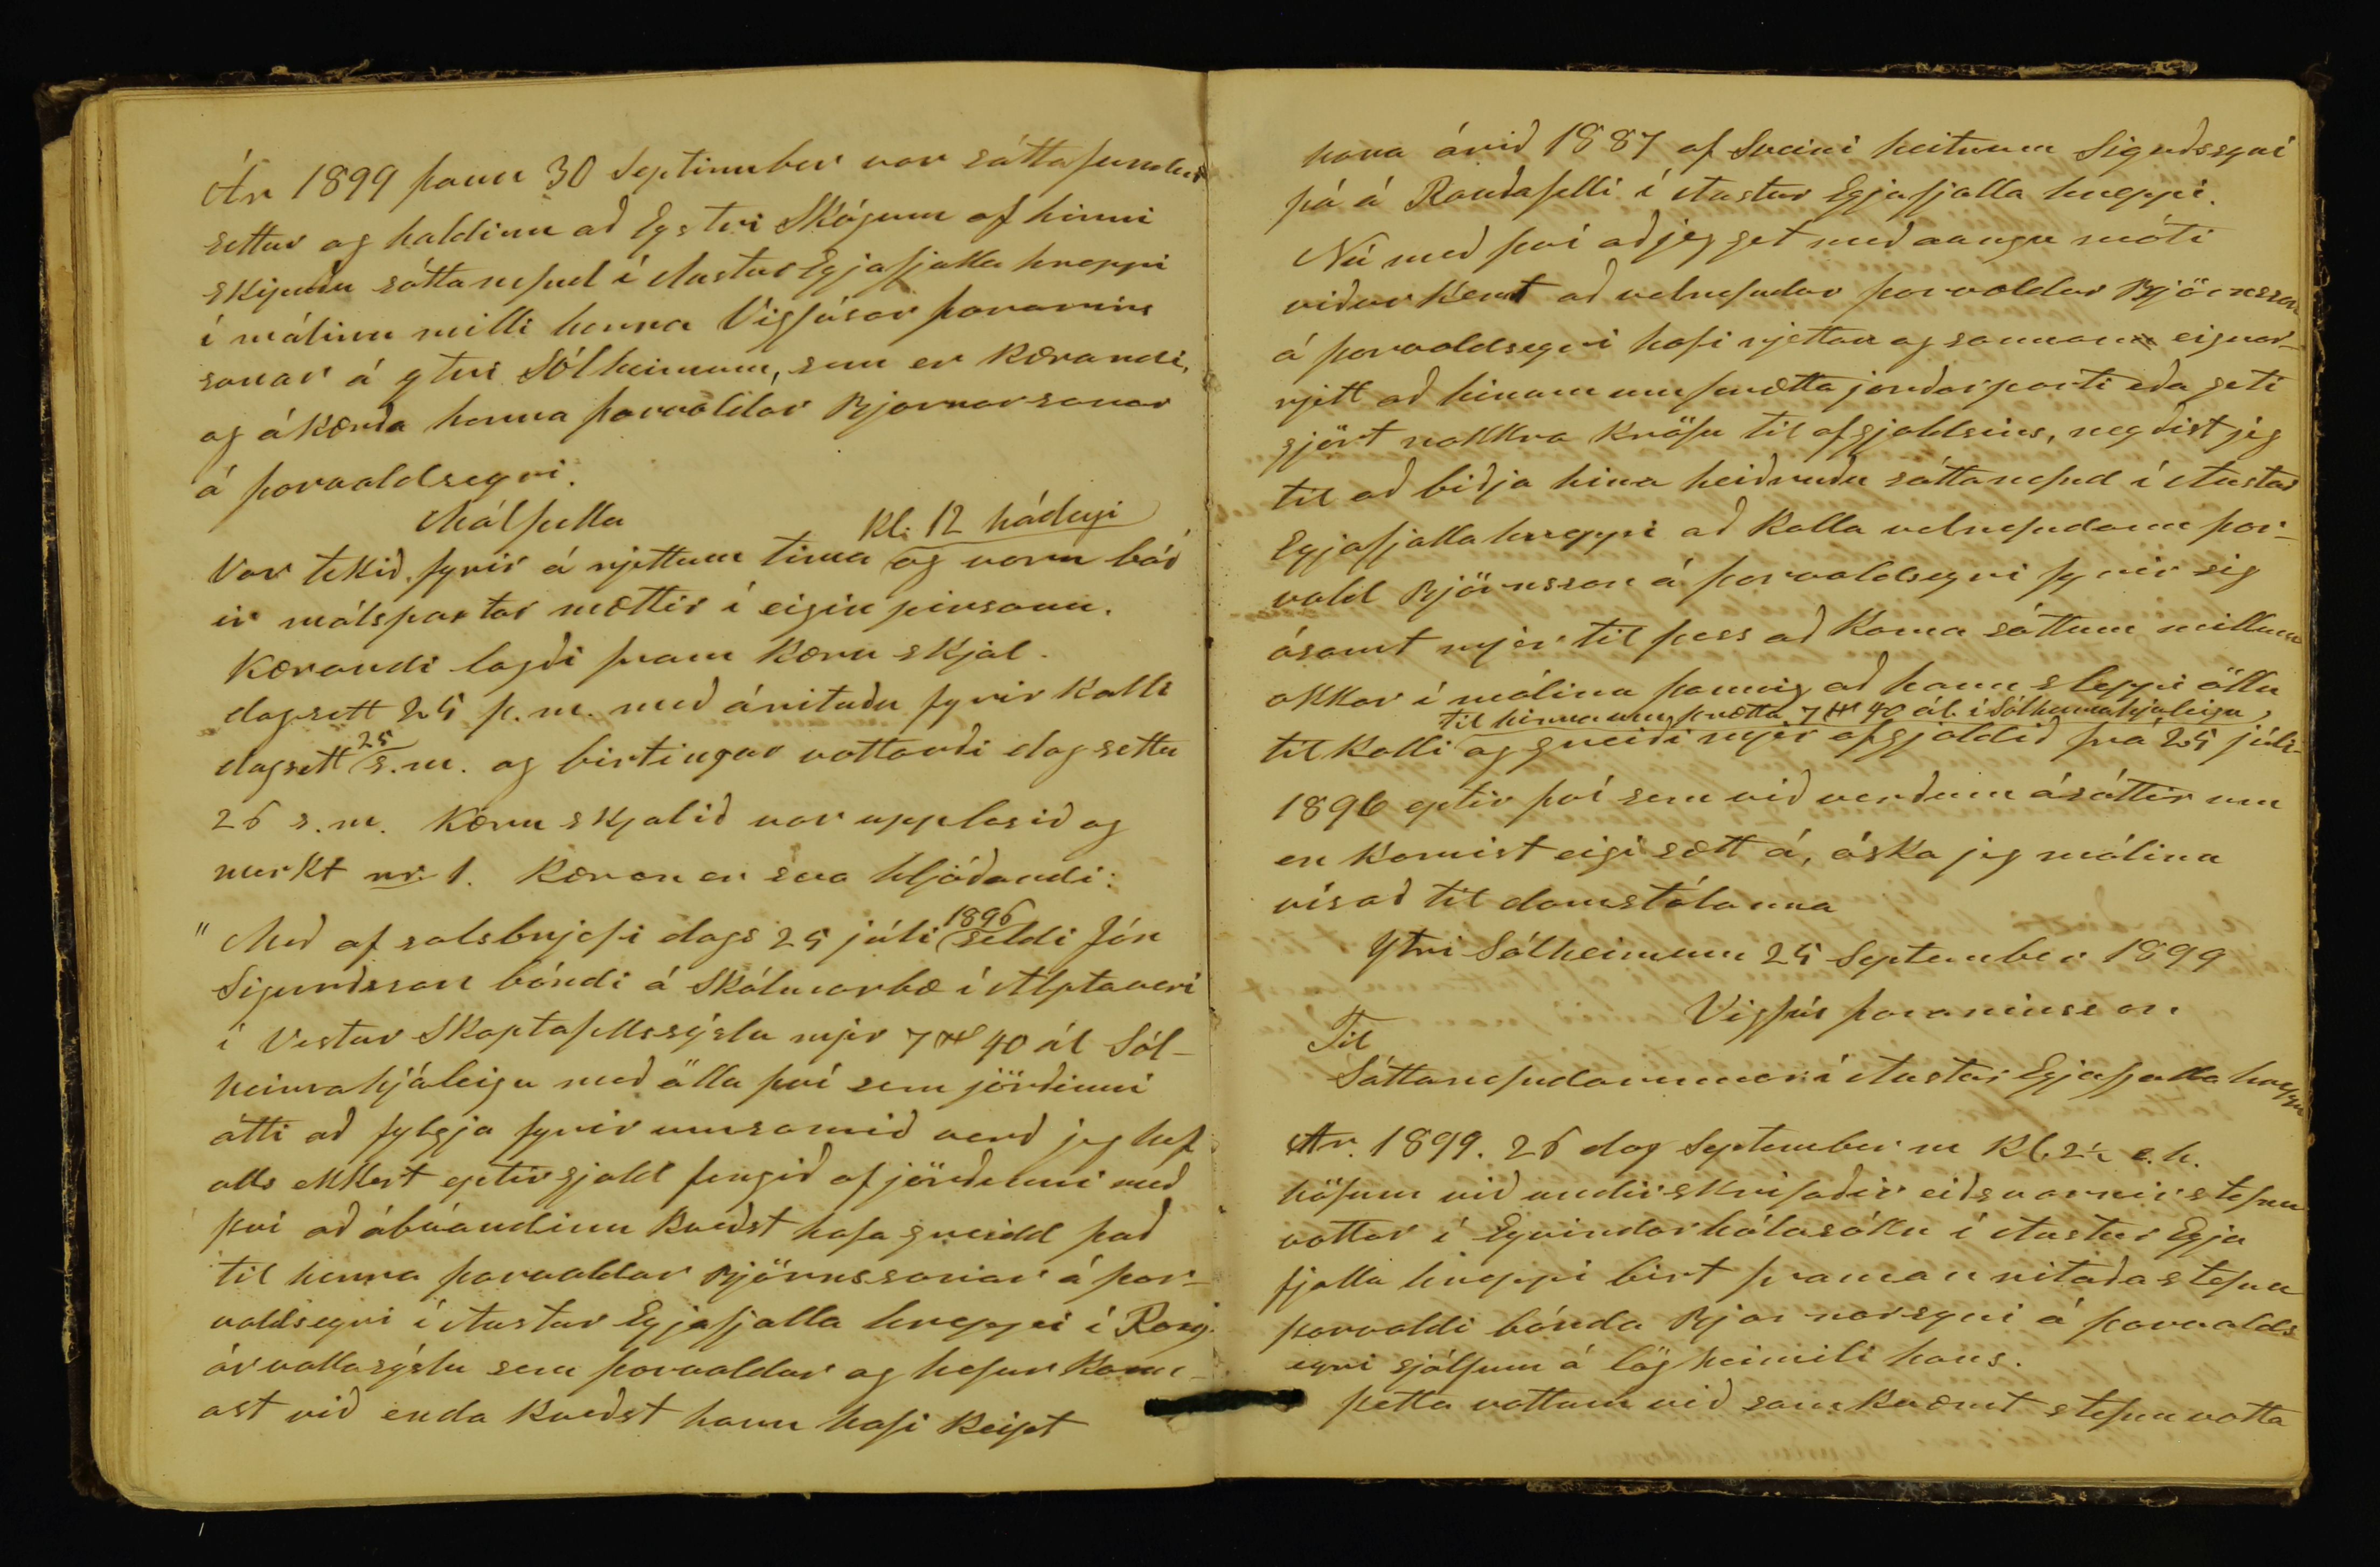 Ár 1899 þann 30 Septimber var sáttafundur
settur og haldinn að Eystri Skógum af hinni
skipuðu sáttanefnd í Austur Eyjafjalla hreppi
í málinu milli herra Vigfúsar Þórarins
sonar á ytri Sólheimum, sem er kærandi,
og ákærða herra Þorvaldar Bjarnarsonar
á Þorvaldseyri.
Málfella
Var tekið fyrir á rjettum tíma kl. 12 hádegi og voru báð
ir málspartar mættir í eigin persónu.
Kærandi lagði fram kæru skjal.
dagsett 25 þ.m. með árituðu fyrir kalli
dagsett 25 s.m. og birtingar vottorði dagsettu
26 s.m. Kæru skjalið var upplesið og
merkt nr. 1. Kæran er svo hljóðandi:
" Með afsalsbrjefi dags 25 júli 1896 seldi Jón
Sigurðsson bóndi á Skálmarbæ í Alptaveri
í Vestur Skaptafellssýslu mjer 7 H 40 ál Sól-
heimahjáleigu með öllu því sem jörðinni
átti að fylgja fyrir umsamið verð jeg hef
alls ekkert eptirgjald fengið af jörðinni með
því að ábúandinn kveðst hafa greidd það
til herra Þorvaldar Björnssonar á Þor-
valdseyri í Austur Eyjafjalla hreppi í Rang-
árvallasýslu sem Þorvaldur og hefur kann-
ast við enda kveðst hann hafi keipt
hana árið 1887 af Sveini heitnum Sigurðssyni
þá á Rauðafelli í Austur Eyjafjalla hreppi.
Nú með því að jeg get með aungu móti
viðurkent að velnefndur Þorvaldur Björnsson
á Þorvaldseyri hafi rjettan og sannan eignar-
rjett að hinum umþrætta jarðarparti eða geti
gjört nokkra kröfu til afgjaldsins, neyðist jeg
til að biðja hina heiðruðu sáttanefnd í Austur
Eyjafjallahreppi að kalla velnefndann Þor-
vald Björnsson á Þorvaldseyri fyrir sig
ásamt mjer til þess að koma sáttum millum
okkar í málinu þannig að hann sleppi öllu
tilkalli til hinna umþrætta 7 H 40 ál. í Sólheimahjáleigu, og greiði mjer afgjaldið frá 25 júlí
1896 eptir því sem við verðum ásáttir um
en komist eigi sætt á, óska jeg málinu
vísað til domstólanna
Ytri Sólheimum 25 September 1899
Vigfús Þórarinsson
Til
Sáttanefndarinnar í Austur Eyjafjalla hreppi
Ár. 1899. 26 dag September m kl. 2½ e.h.
höfum við undirskrifaðir eiðsvarnir stefnu
vottar í Eyvindarhólasókn í Austur Eyja
fjalla hreppi birt framanritaða stefnu
Þorvaldi bónda Bjarnarsyni á Þorvalds
eyri sjálfum á lögheimili hans.
Þetta vottum við samkvæmt stefnuvotta